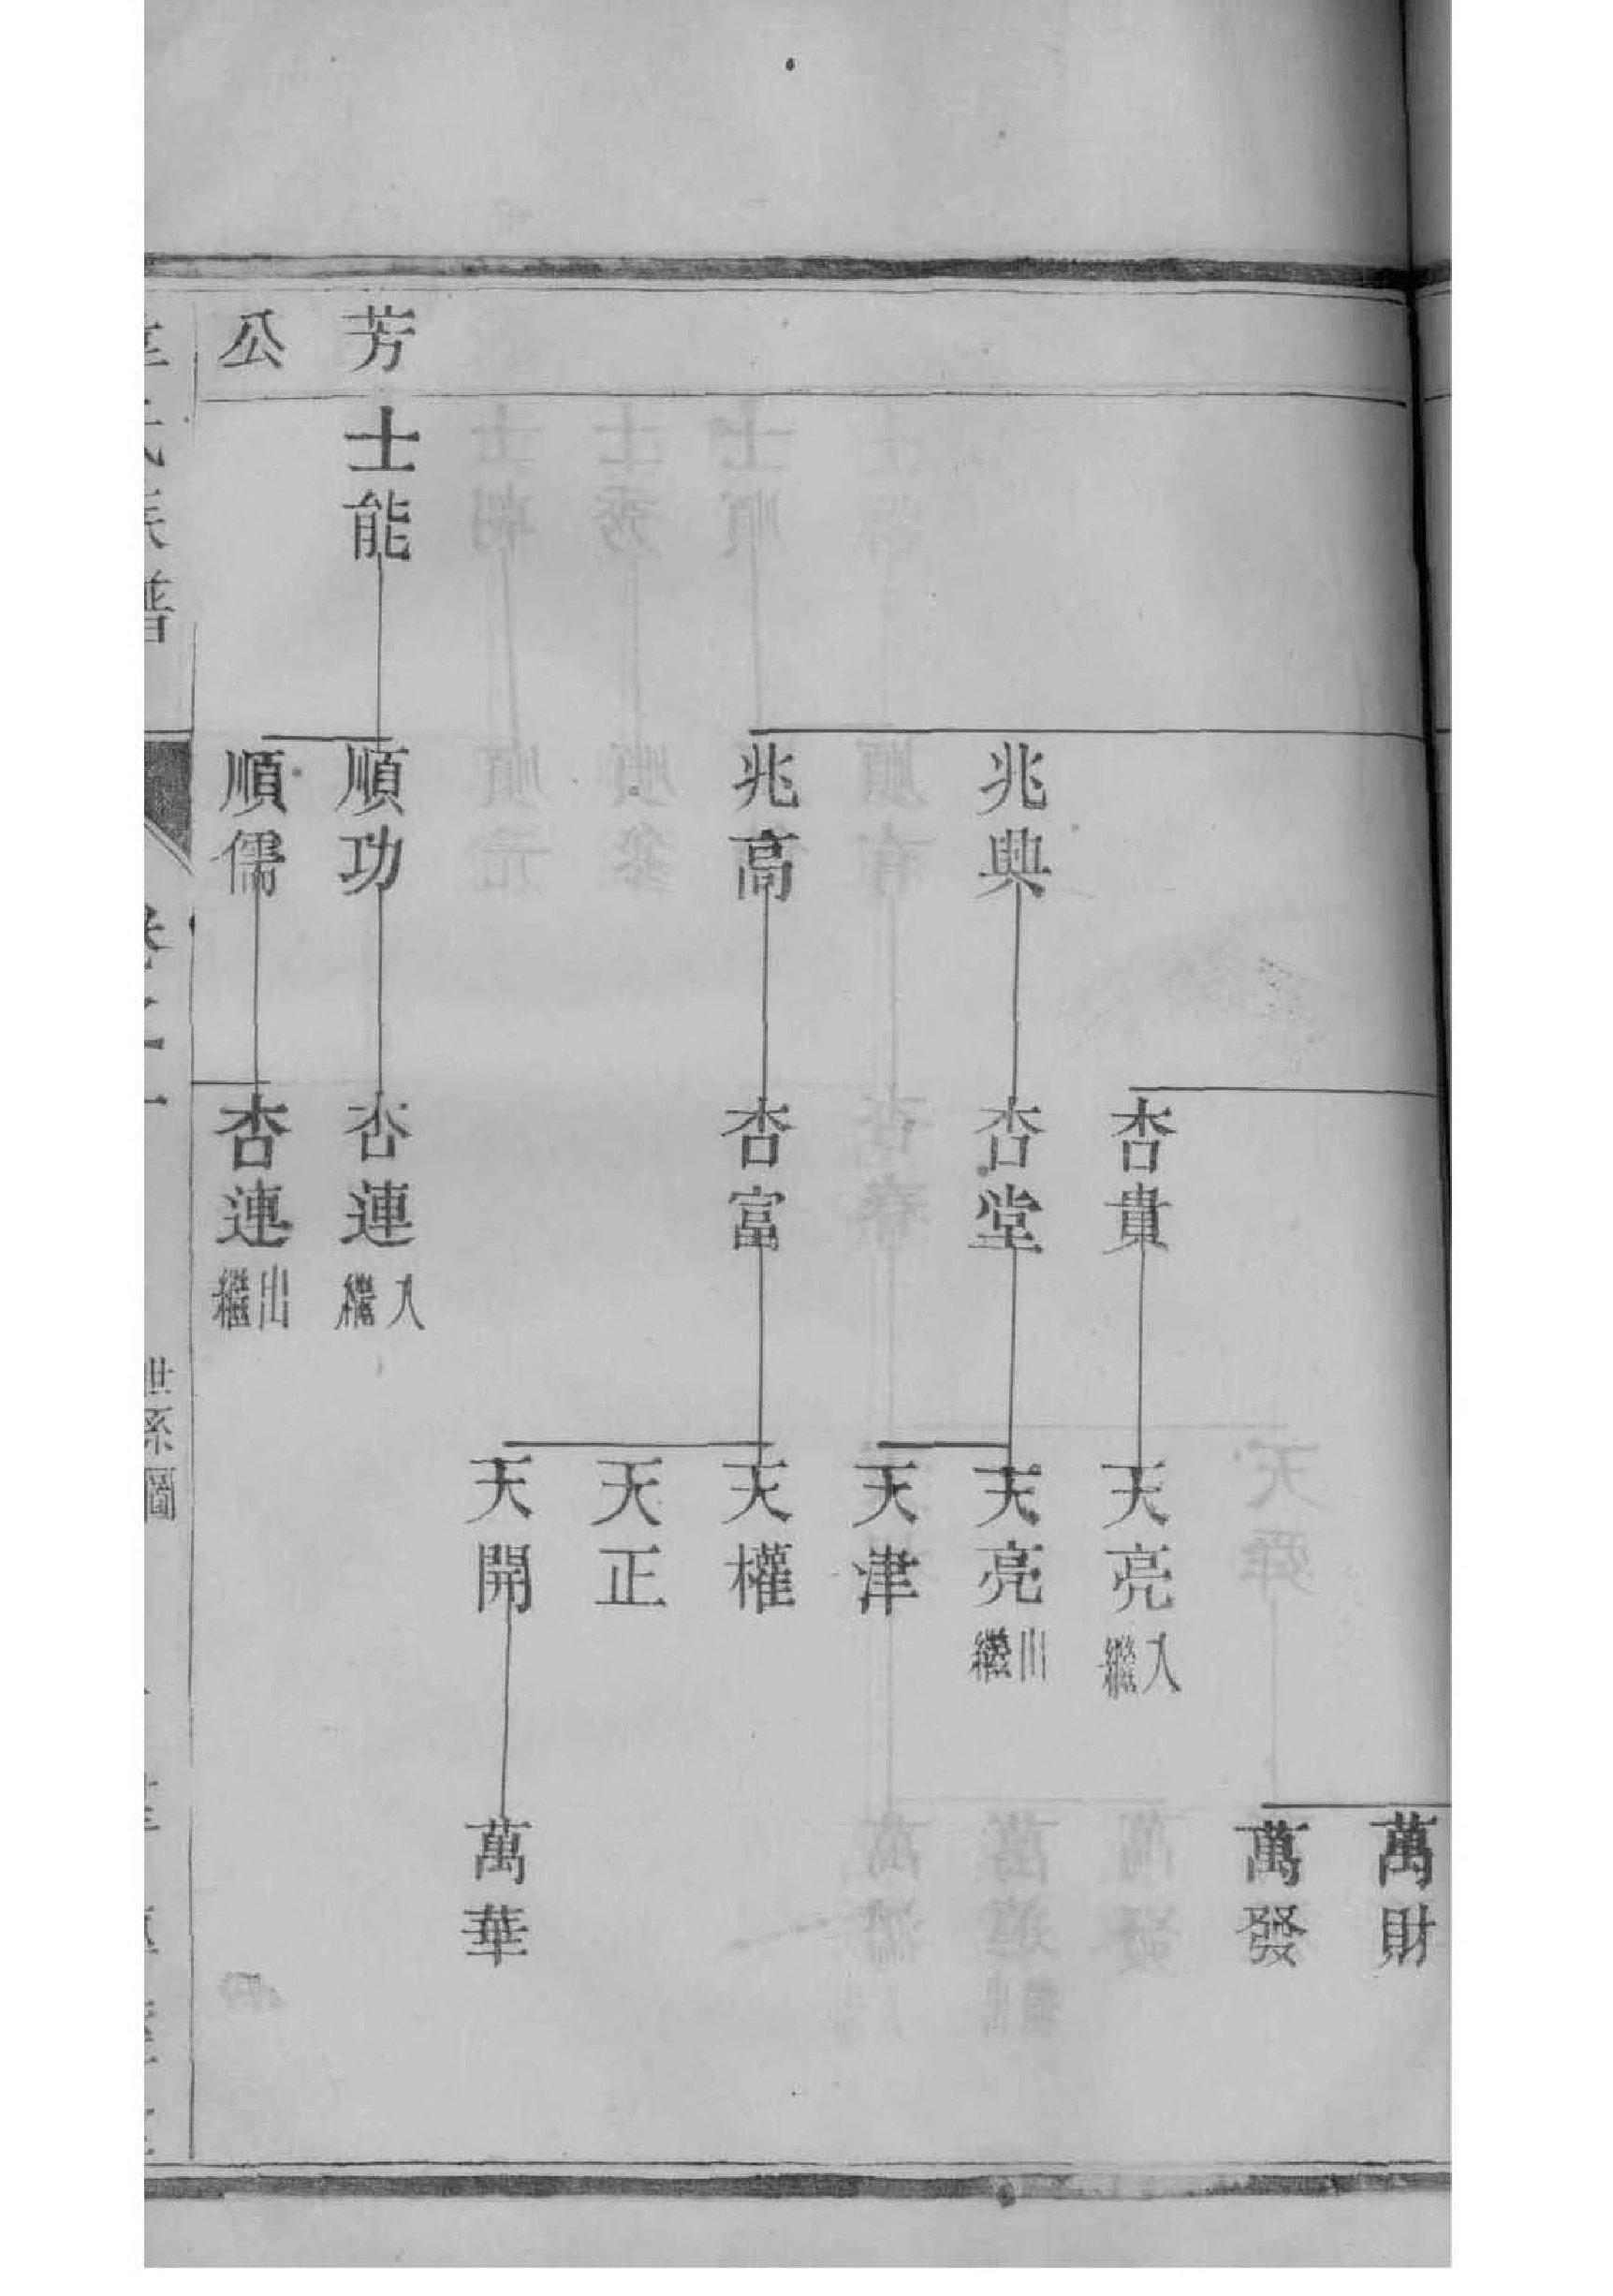 萬財
萬發
杏貴
天亮
入繼
兆興
杏堂
天亮
出繼
天津
兆高
杏富
天權
天正
天開
萬華
芳
士能
順功
杏連
入繼
公
順儒
杏連
出繼
世系圖